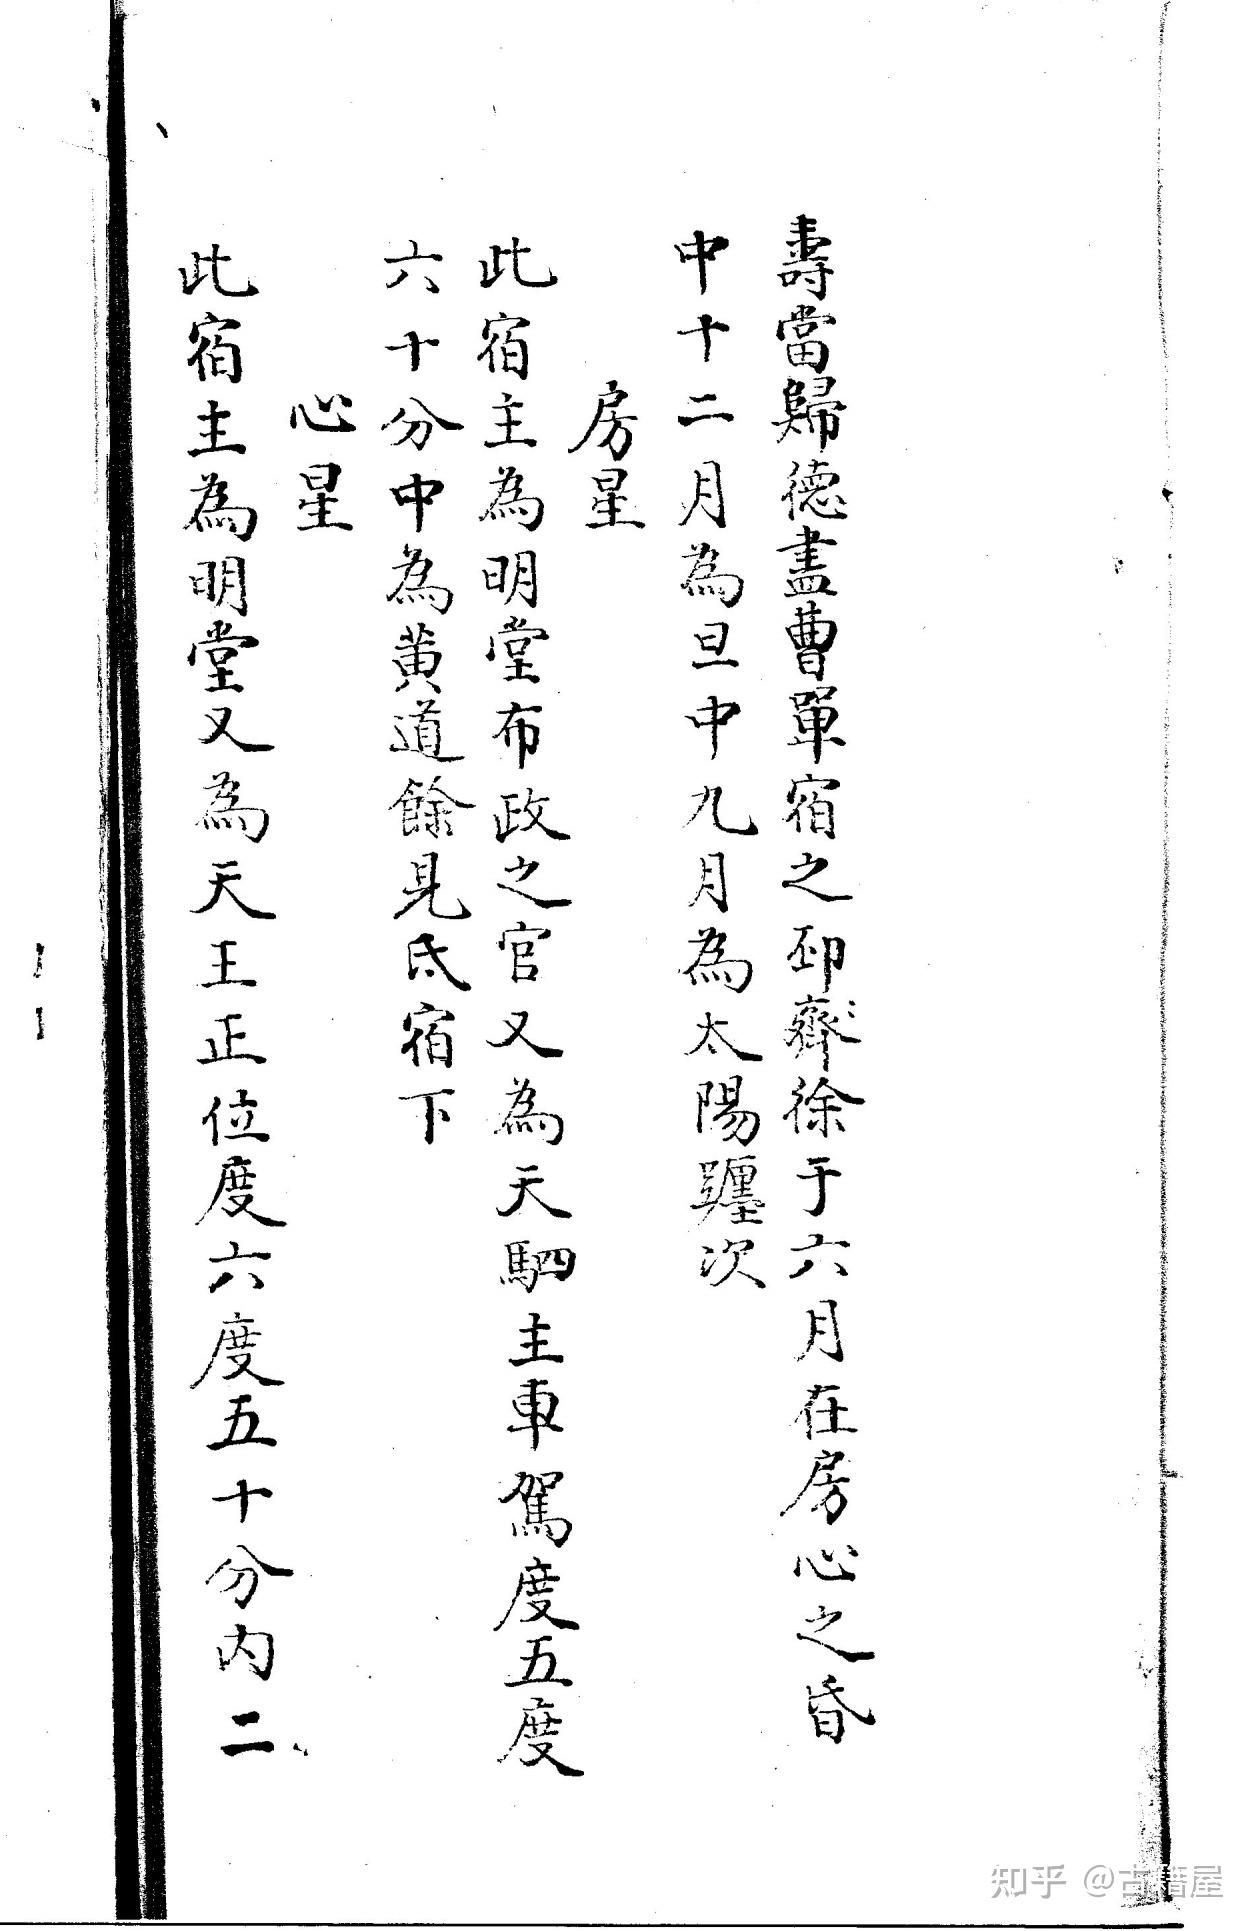 壽當歸德盡曹單宿之邳齊徐于六月在房心之昏
中十二月為旦中九月為太陽躔次
房星
此宿主為明堂布政之官又為天駟主車駕度五度
六十分中為黃道餘見氐宿下
心星
此宿主為明堂又為天王正位度六度五十分內二
知乎 @古籍屋